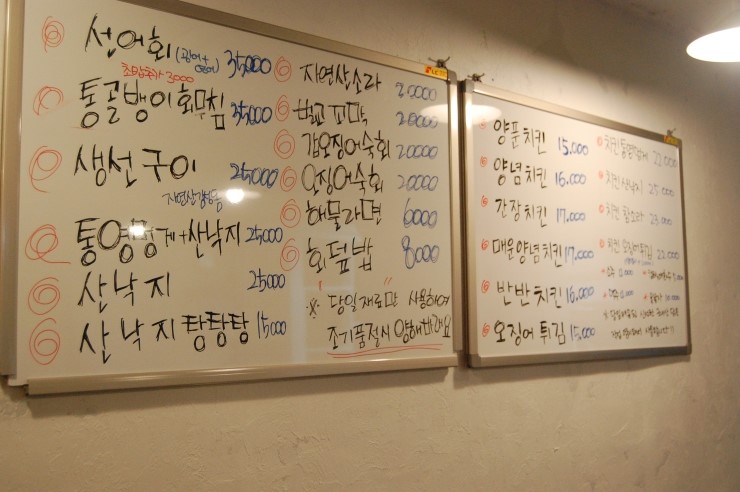 선어회 (광어+연어) 35000
초밥추가 3000
통골뱅이회무침 35000
생선구이 25000
통영멍게+산낙지 25000
산낙지 25000
산낙지탕탕탕 15000
자연산소라 20000
벌교꼬막 20000
갑오징어숙회 20000
오징어숙회 20000
해물라면 6000
회덮밥 8000
※ "당일재료만 사용하여
조기품절시 양해바래요
양푼치킨 15.000
양념치킨 16.000
간장치킨 17.000
매운양념치킨 17.000
반반치킨 16.000
오징어튀김 15.000
치킨 22.000
치킨산낙지 25.000
치킨참소라 23.000
치킨오징어튀김 22.000